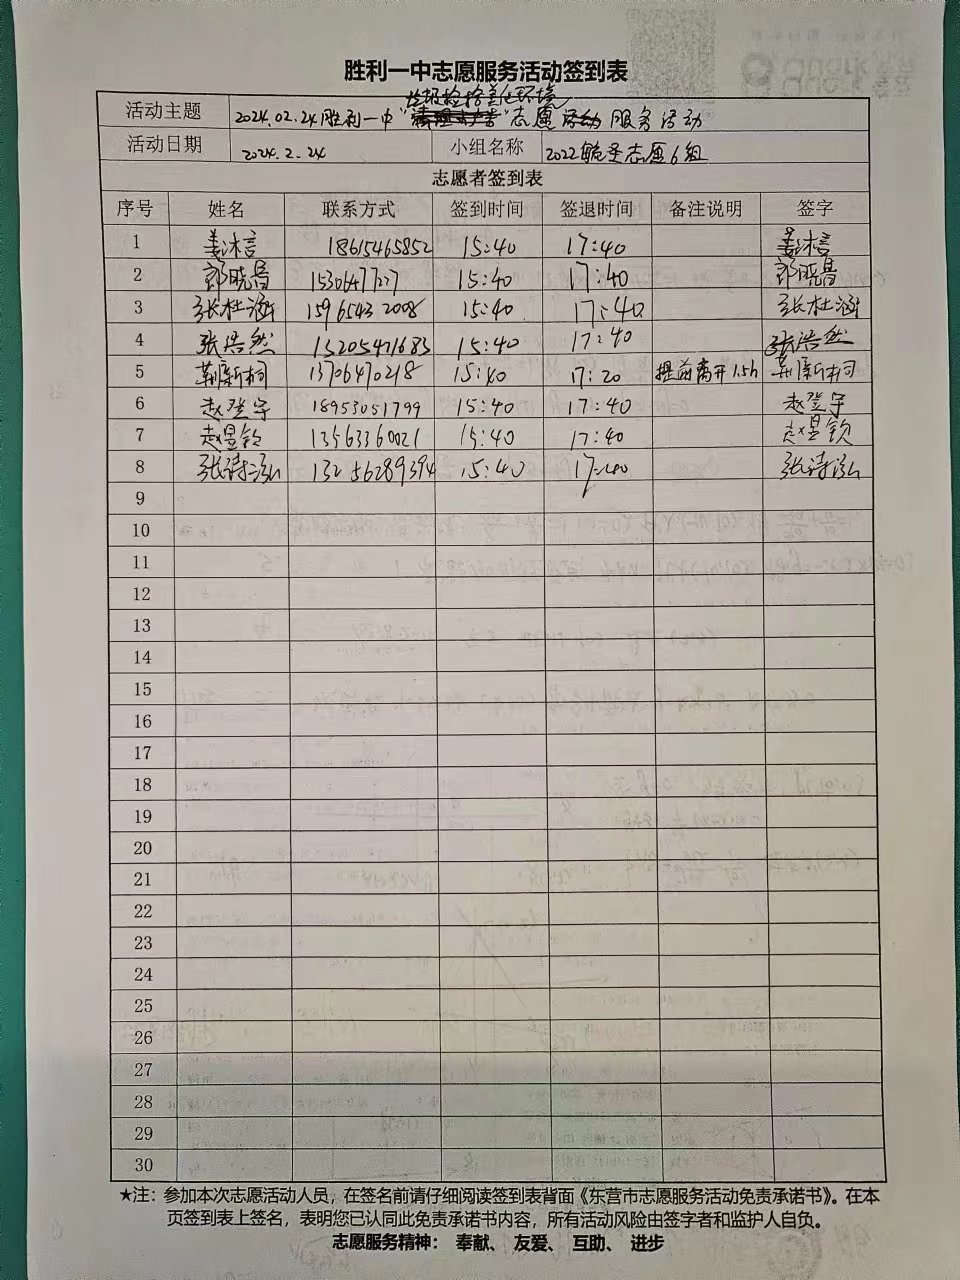 胜利一中志愿服务活动签到表
垃圾捡拾美化环境
活动主题 2024.02.24胜利一中“ ”志愿 服务活动
活动日期 2024.2.24 小组名称 2022 志愿6组
志愿者签到表
序号 姓名 联系方式 签到时间 签退时间 备注说明 签字
1 姜沐言 18615465852 15:40 17:40 姜沐言
2 郭晓昌 1530647727 15:40 17:40 郭晓昌
3 张杜涵 15965432008 15:40 17:40 张杜涵
4 张浩然 15205471683 15:40 17:40 张浩然
5 靳新桐 13706470218 15:40 17:20 提前离开1.5h 靳新桐
6 赵登宇 18953051799 15:40 17:40 赵登宇
7 赵昱钦 13563360021 15:40 17:40 赵昱钦
8 张诗泓 13256289394 15:40 17:40 张诗泓
9
10
11
12
13
14
15
16
17
18
19
20
21
22
23
24
25
26
27
28
29
30
★注：参加本次志愿活动人员，在签名前请仔细阅读签到表背面《东营市志愿服务活动免责承诺书》。在本
页签到表上签名，表明您已认同此免责承诺书内容，所有活动风险由签字者和监护人自负。
志愿服务精神： 奉献、 友爱、 互助、 进步